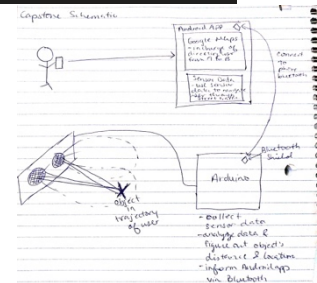 Capstone Schematic
Android App
Google Maps
- in charge of
from A to B
Sensor Data
- use sensor
data to
Connect
to
phone
bluetooth
Bluetooth
Shield
Arduino
object
in
trajectory
of user
- collect
sensor data
- analyze data &
figure out object's
distance & location
- inform Android app
via Bluetooth